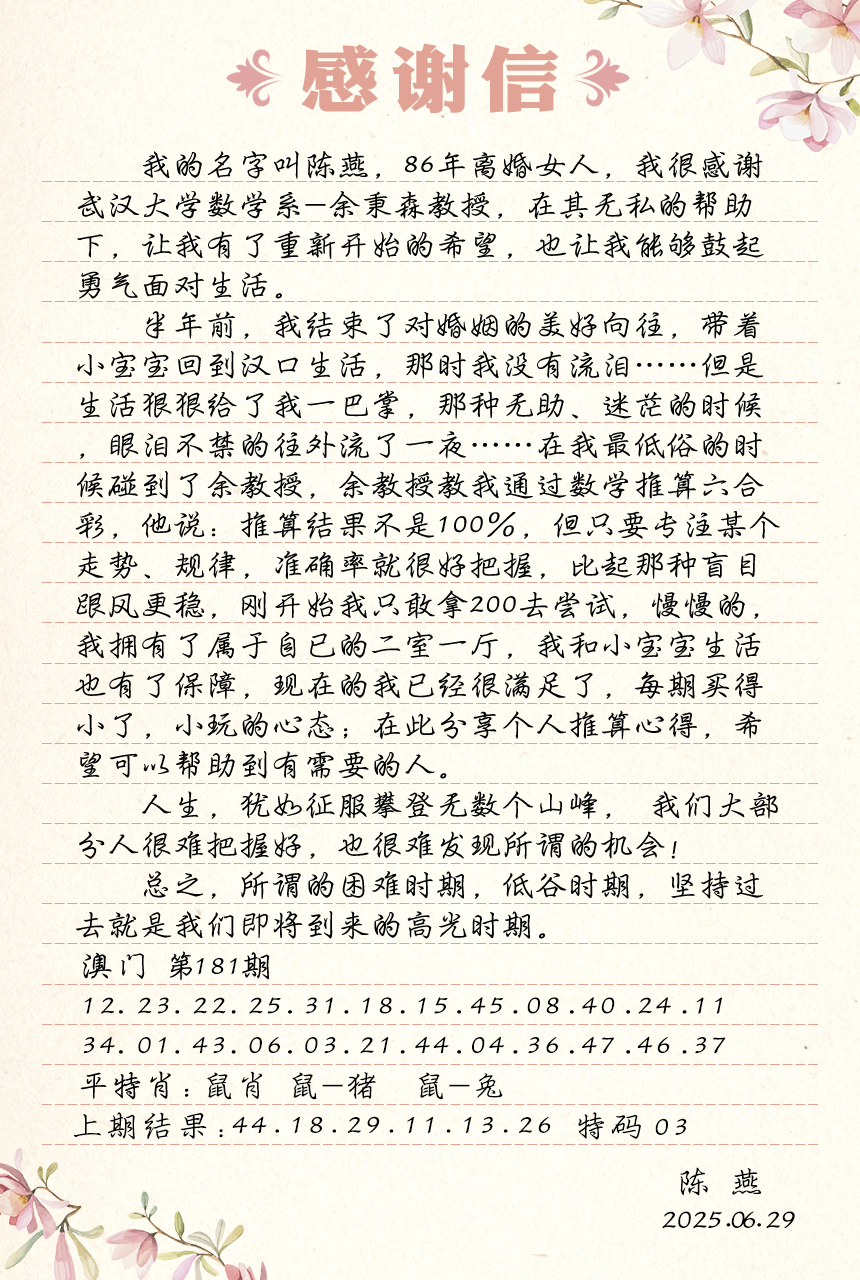 感谢信
我的名字叫陈燕，86年离婚女人，我很感谢
武汉大学数学系—余秉森教授，在其无私的帮助
下，让我有了重新开始的希望，也让我能够鼓起
勇气面对生活。
半年前，我结束了对婚姻的美好向往，带着
小宝宝回到汉口生活，那时我没有流泪……但是
生活狠狠给了我一巴掌，那种无助、迷茫的时候
，眼泪不禁的往外流了一夜……在我最低俗的时
候碰到了余教授，余教授教我通过数学推算六合
彩，他说：推算结果不是100%，但只要专注某个
走势、规律，准确率就很好把握，比起那种盲目
跟风更稳，刚开始我只敢拿200去尝试，慢慢的，
我拥有了属于自已的二室一厅，我和小宝宝生活
也有了保障，现在的我已经很满足了，每期买得
小了，小玩的心态；在此分享个人推算心得，希
望可以帮助到有需要的人。
人生，犹如征服攀登无数个山峰， 我们大部
分人很难把握好，也很难发现所谓的机会！
总之，所谓的困难时期，低谷时期，坚持过
去就是我们即将到来的高光时期。
澳门 第181期
12.23.22.25.31.18.15.45.08.40.24.11
34.01.43.06.03.21.44.04.36.47.46.37
平特肖：鼠肖 鼠—猪 鼠—兔
上期结果：44.18.29.11.13.26 特码 03
陈 燕
2025.06.29